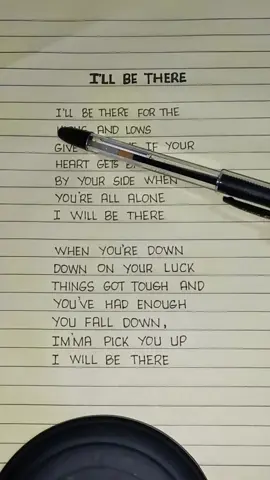 I'LL BE THERE
I'LL BE THERE FOR THE
AND LOWS
GIVE IF YOUR
HEART GETS
BY YOUR SIDE WHEN
YOU'RE ALL ALONE
I WILL BE THERE
WHEN YOU'RE DOWN
DOWN ON YOUR LUCK
THINGS GOT TOUGH AND
YOU'VE HAD ENOUGH
YOU FALL DOWN,
IM'MA PICK YOU UP
I WILL BE THERE